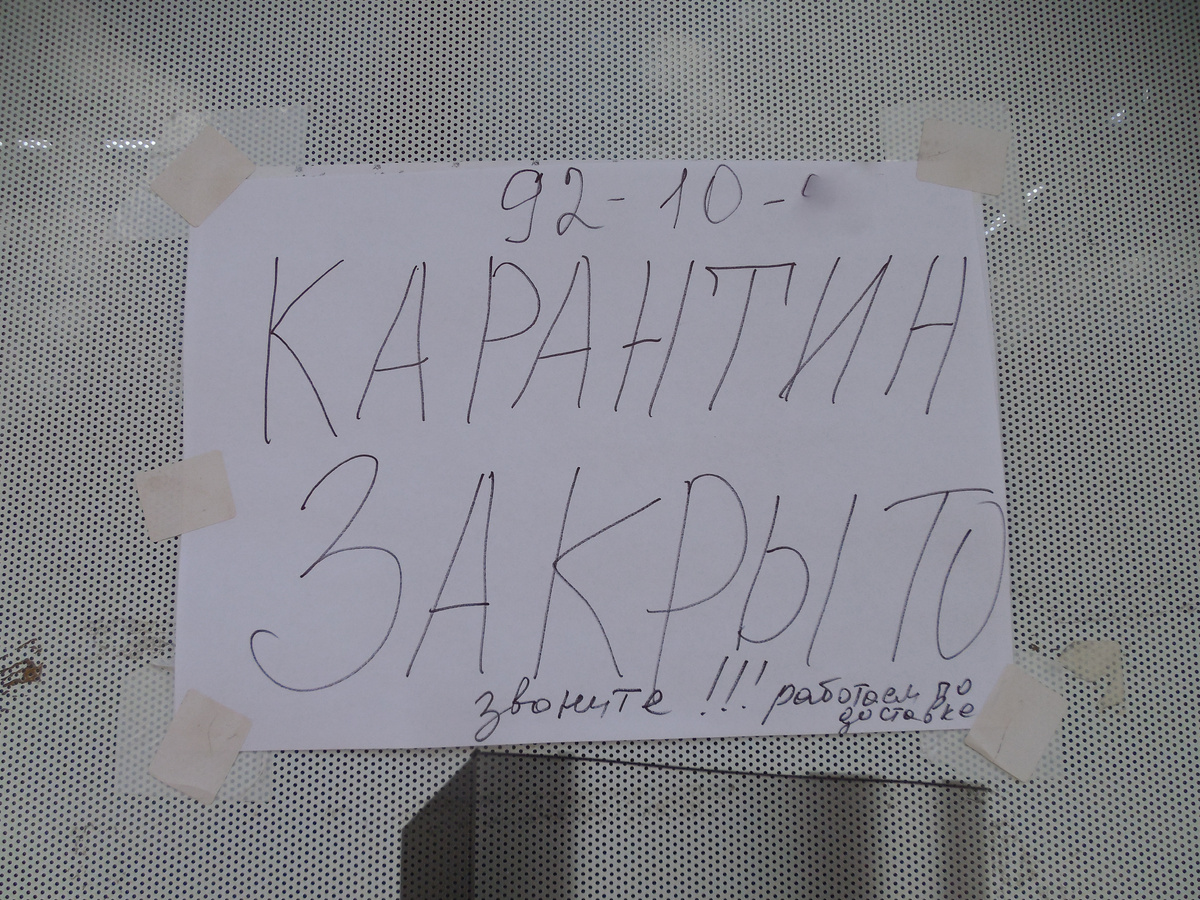 92-10-
КАРАНТИН
ЗАКРЫТО
звоните !!! работаем по
доставке